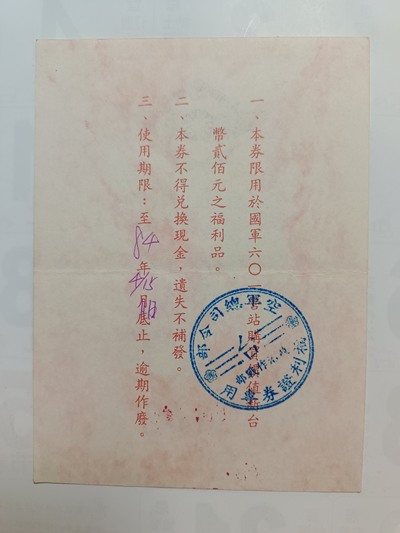 一、本券限用於國軍六〇一營站購買價值新台
幣貳佰元之福利品。
二、本券不得兌換現金，遺失不補發。
三、使用期限：至84年5月底止，逾期作廢。
空軍總司令部
福利證券專用